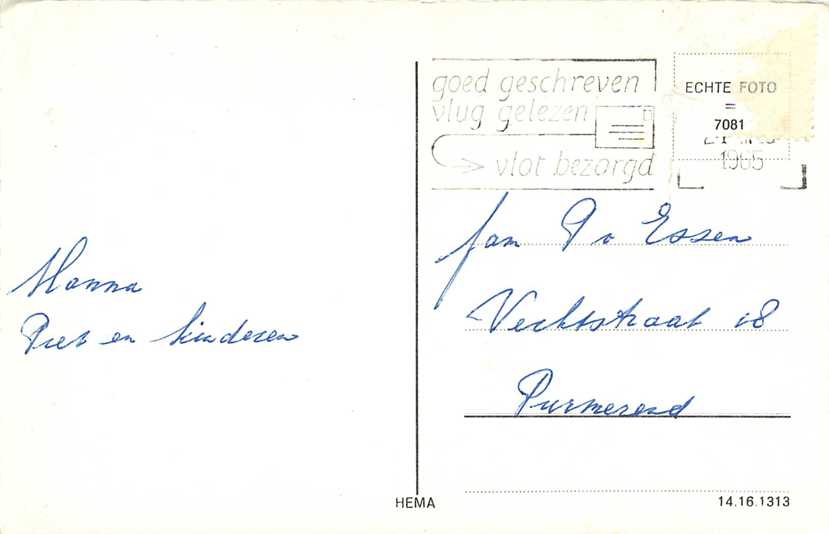 goed geschreven
vlug gelezen
vlot bezorgd
ECHTE FOTO
=
7081
1965
Hanna
Piet en kinderen
Jan P v Essen
Vechtstraat 18
Purmerend
HEMA
14.16.1313